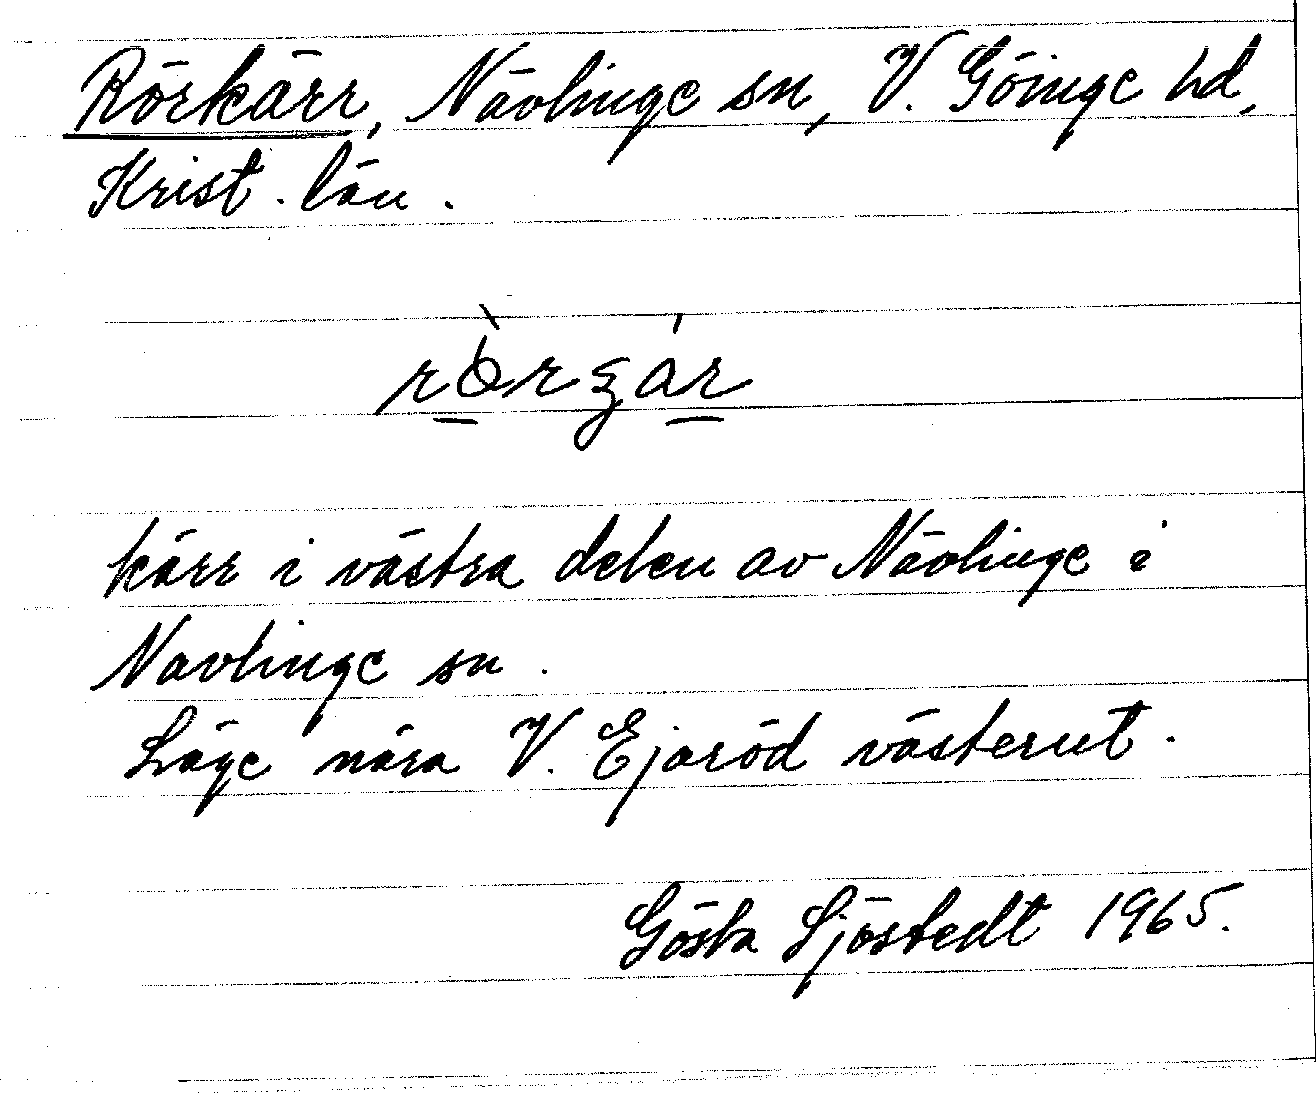 Rörkärr, Nävlinge sn, V. Göinge hd,
Krist. län.
kärr i västra delen av Nävlinge i
Navlinge sn.
Läge nära V. Ejaröd västerut.
Gösta Sjöstedt 1965.